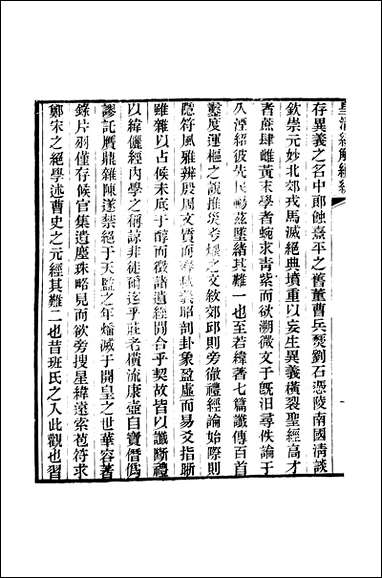 皇清經解續編
存異義之名中郎蝕熹平之舊董曹兵燹劉石憑陵南國淸談
欽崇元妙北郊戎馬滅絕典墳重以妄生異義橫裂聖經高才
者蔗肆雌黃末學者蜿求靑紫而欲溯微文于旣汨尋佚論于
久湮綴彼先民勝茲墜緒其難一也至若緯著七篇讖傳百首
鑿度運樞之說推災考燿之文敘郊邱則旁徹禮經論始際則
隱符風雅辨殷周文質而
昭剖卦象盈虛而易爻指晣
雖雜以占候未底于醇而徵諸遺經閒合乎契故皆以讖斷禮
以緯儷經內學之稱諒非徒爾迄乎莊老橫流康壺自寶僭僞
謬託贋鼎雜陳遂禁絕于天監之年燔滅于開皇之世華容著
錄片羽僅存候官集遺塵珠略見而欲旁搜星緯遠索苞符求
鄭宋之絕學述曹史之元經其難二也昔班氏之入此觀也習